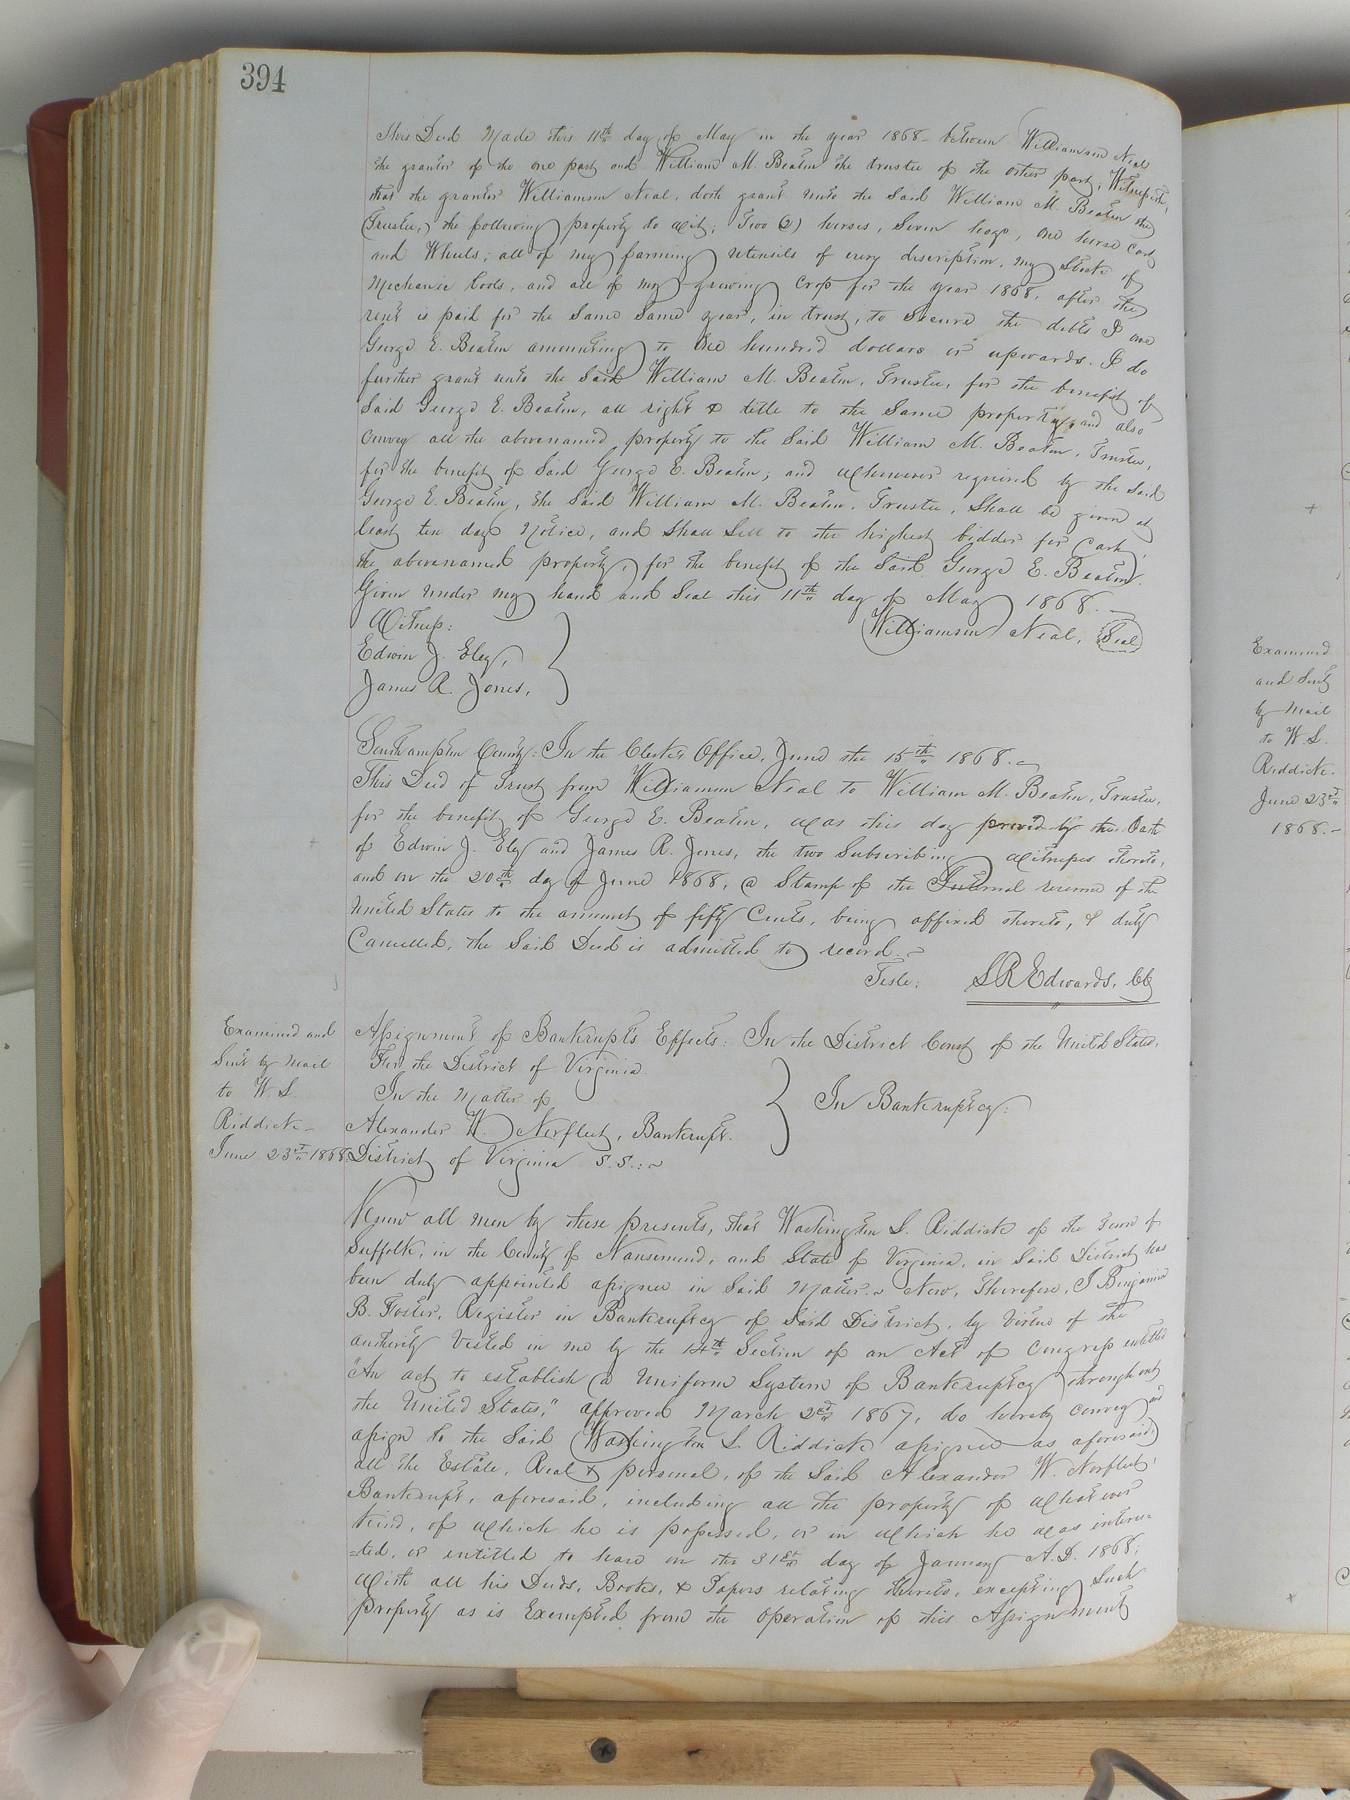 394
This Deed Made this 11th day of May in the year 1868 - between Williamson Neal
the grantor of the one part and William M. Beaton the trustee of the other part; Witnesseth,
that the grantor Williamson Neal, doth grant unto the Said William M. Beaton the
(Trustee,) the following property to wit; Two (2) horses, Seven hogs, one horse cart
and Wheels; all of my farming utensils of every discription, my Stock of
Mechanic tools, and all of my growing crop for the year 1868, after the
rent is paid for the Same Same year, in trust, to Secure the debts I owe
George E. Beaton amounting to One hundred dollars or upwards. I do
further grant unto the Said William M. Beaton, Trustee, for the benefit of
Said George E. Beaton, all right & title to the Same property, and also
Convey all the abovenamed property to the Said William M. Beaton, Trustee,
for the benefit of Said George E. Beaton; and whenever required by the Said
George E. Beaton, the Said William M. Beaton, Trustee, Shall be given at
least ten days Notice, and shall Sell to the highest bidder for Cash,
the abovenamed property, for the benefit of the Said George E. Beaton.
Given under my hand and Seal this 11th day of May 1868.
Witness: Williamson Neal, Seal
Edwin J. Eley,
James R. Jones,
Southampton County: In the Clerk's Office, June the 15th 1868.
This Deed of Trust from Williamson Neal to William M. Beaton, Trustee,
for the benefit of George E. Beaton, was this day proved by the Oath
of Edwin J. Eley and James R. Jones, the two Subscribing Witnesses thereto,
and on the 20th day of June 1868, a Stamp of the Internal revenue of the
United States to the amount of fifty Cents, being affixed thereto, & duly
Cancelled, the Said Deed is admitted to record.
Teste: L R Edwards, Clk
Examined and
Sent by Mail
to W. S.
Riddick -
June 23rd 1868
Assignment of Bankrupt's Effects: In the District Court of the United States,
For the District of Virginia.
In the Matter of
Alexander W. Norfleet, Bankrupt.
In Bankruptcy:
District of Virginia S.S.:
Know all men by these presents, that Washington S. Riddick of the Town of
Suffolk, in the County of Nansemond, and State of Virginia, in Said District has
been duly appointed assignee in Said Matter. Now, Therefore, I Benjamin
B. Foster, Register in Bankruptcy of Said District, by Virtue of the
authority Vested in me by the 14th Section of an Act of Congress entitled
"An act to establish a Uniform System of Bankruptcy throughout
the United States," approved March 2nd 1867, do hereby convey and
assign to the Said Washington S. Riddick assignee as aforesaid,
all the Estate, Real & personal, of the Said Alexander W. Norfleet,
Bankrupt, aforesaid, including all the property of Whatever
kind, of which he is possessed, or in which he was interes=
=ted, or entitled to have on the 31st day of January A.D. 1868;
With all his Deeds, Books, & Papers relating thereto, excepting Such
property as is Exempted from the Operation of this Assignment
Examined
and Sent
by Mail
to W. S.
Riddick.
June 23rd
1868.-